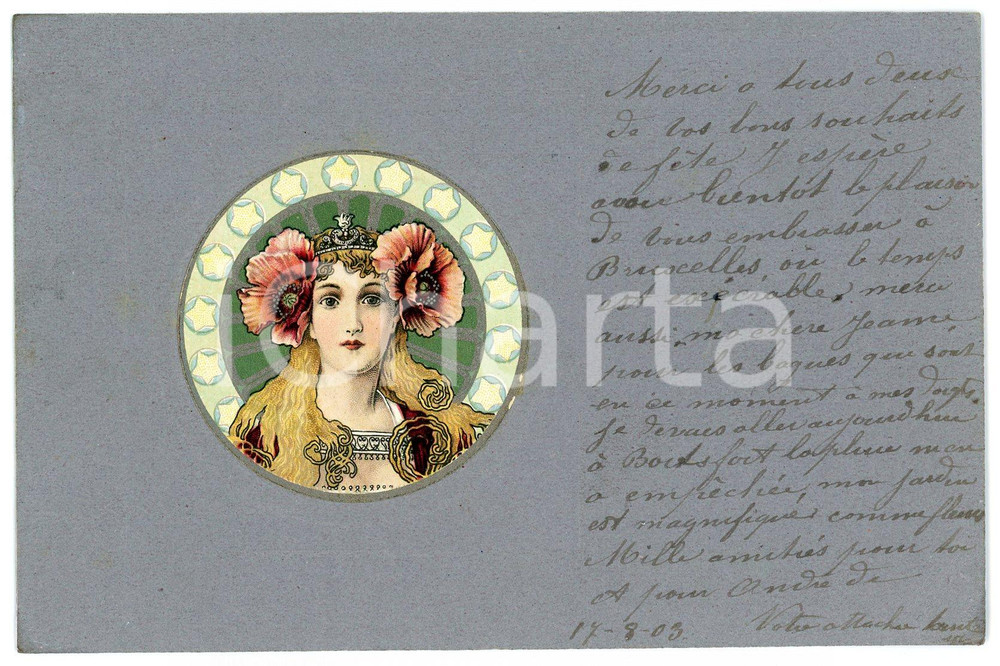 Merci a tous deux
de vos bons souhaits
de fête J espère
avoir bientot le plaisir
de vous embrasser à
Bruxelles, ou le temps
est exécrable. merci
aussi, ma chère Jeanne,
pour les bagues que sont
en ce moment a mes doigts.
Je devais aller aujourdhui
à Boitsfort la pluie m en
a empêchée, mon jardin
est magnifique comme fleurs
Mille amitiés pour toi
et pour André de
17-8-03. Votre attachée tante
Charta